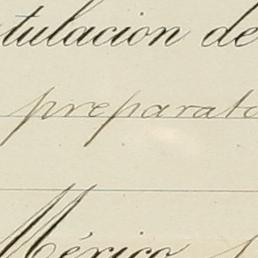 tulación de
preparato
México